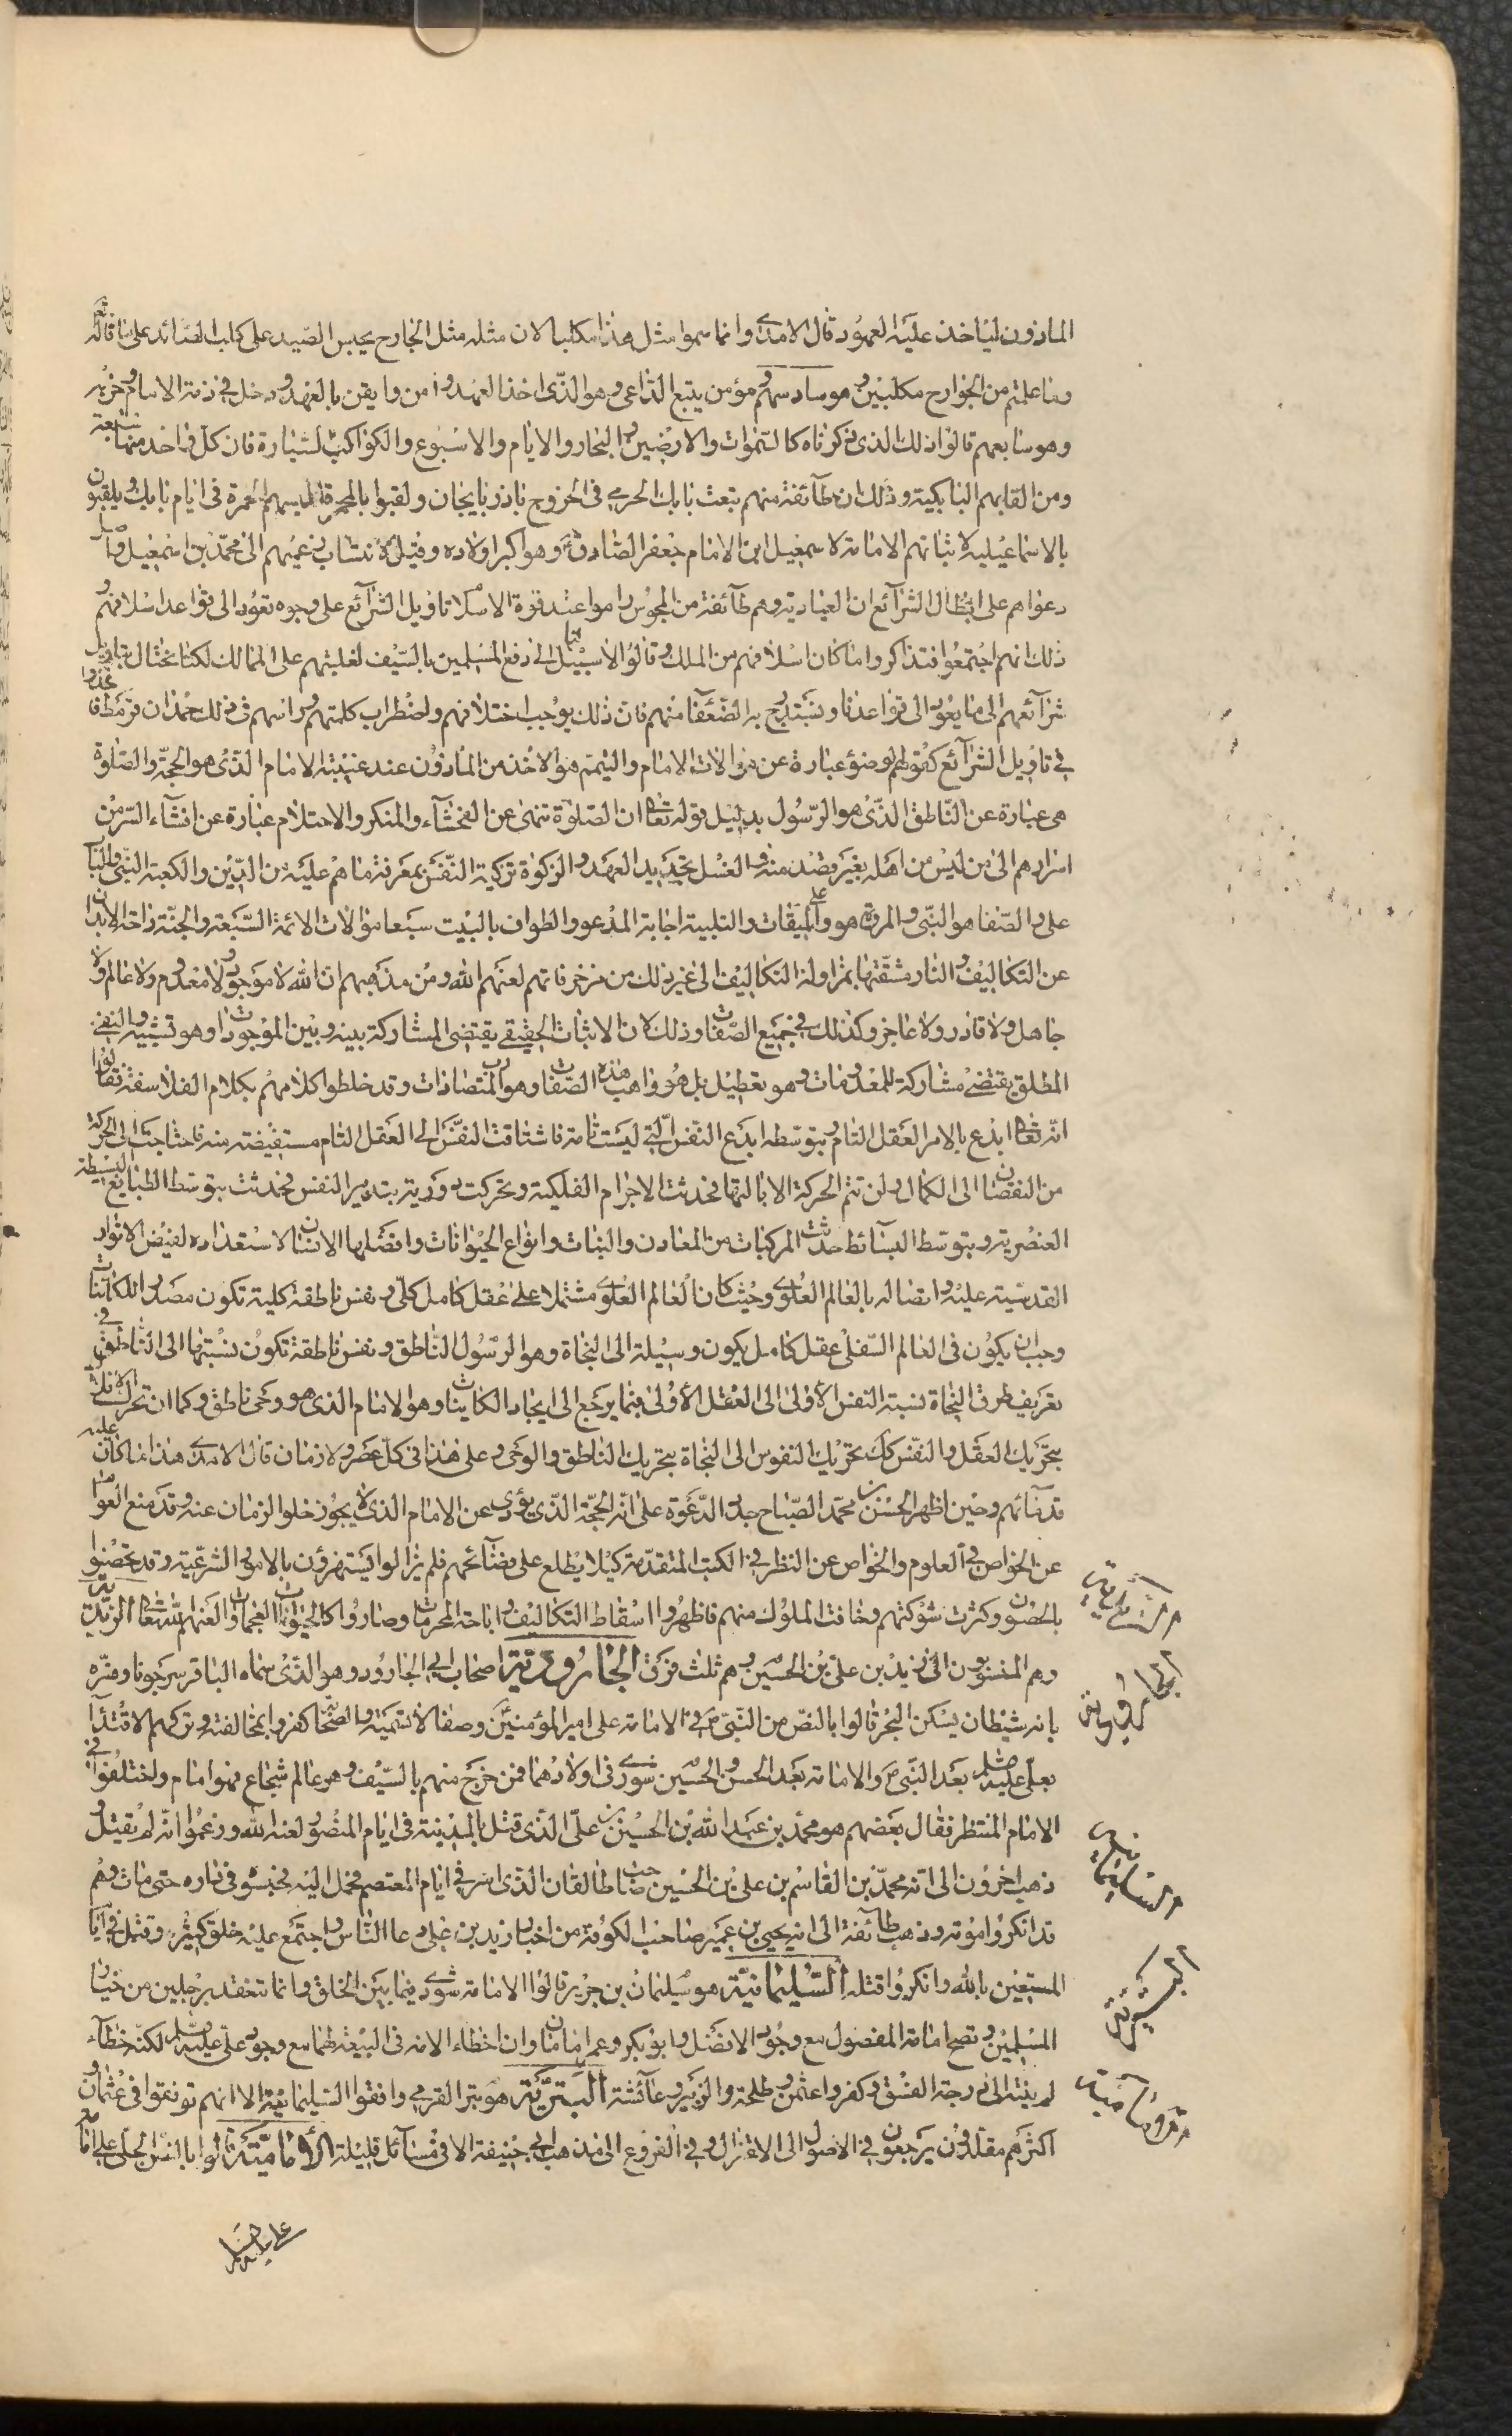 الماذون لياخذ عليه العهود قال الامدى وانما سموا مثل هذا مكلبا لان مثله مثل الجارح يحبس الصيد على كلب الصائد على ما قال تعالى
وما علمتم من الجوارح مكلبين وهو سادسهم ومؤمن يتبع الداعى وهو الذى اخذ العهد وامن وايقن بالعهد ودخل فى ذمة الامام وحزبه
وهو سابعهم قالوا ذلك الذى ذكرناه كالسموات والارضين والبحار والايام والاسبوع والكواكب السيارة فان كل واحد منها سبعة
ومن القابهم البابكية وذلك ان طائفة منهم تبعت بابك الخرمى فى الخروج باذربايجان ولقبوا بالمحمرة للبسهم الحمرة فى ايام بابك ويلقبون
بالاسماعيلية لاثباتهم الامامة لاسمعيل ابن الامام جعفر الصادق وهو اكبر اولاده وقيل لانتساب زعيمهم الى محمد بن اسمعيل واصل
دعواهم على ابطال الشرائع ان العبادية وهم طائفة من المجوس راموا عند قوة الاسلام تاويل الشرائع على وجوه تعود الى قواعد اسلافهم و
ذلك انهم اجتمعوا فتذاكروا ما كان اسلافهم من الملك وقالوا لا سبيل لنا الى دفع المسلمين بالسيف لغلبتهم على الممالك لكنا نحتال بتاويل
شرائعهم الى ما يعود الى قواعدنا ونستدرج به الضعفا منهم فان ذلك يوجب اختلافهم واضطراب كلمتهم وراسهم فى ذلك حمدان قرمط فاخذوا
فى تاويل الشرائع كقولهم الوضؤ عبارة عن موالات الامام والتيمم هو الاخذ من الماذون عند غيبته الامام الذى هو الحجة والصلوة
هى عبارة عن الناطق الذى هو الرسول بدليل قوله تعالى ان الصلوة تنهى عن الفحشاء والمنكر والاحتلام عبارة عن افشاء السر من
اسرارهم الى من ليس من اهله بغير قصد منه والغسل تجديد العهد والزكوة تزكية النفس بمعرفة ما هم عليه من الدين والكعبة النبى والباب
على والصفا هو النبى والمروة هو على والميقات والتلبية اجابة المدعو والطواف بالبيت سبعا موالات الائمة السبعة والجنة راحة الابدان
عن التكاليف والنار مشقتها بمزاولة التكاليف الى غير ذلك من خرفاتهم لعنهم الله ومن مذهبهم ان الله لا موجود ولا معدوم ولا عالم ولا
جاهل ولا قادر ولا عاجز وكذلك فى جميع الصفات وذلك لان الاثبات الحقيقى يقتضى المشاركة بينه وبين الموجودات وهو تشبيه والنفى
المطلق يقتضى مشاركة للمعدومات وهو تعطيل بل هو واهب هذه الصفات وهو رب المتضادات وقد خلطوا كلامهم بكلام الفلاسفة فقالوا
انه تعالى ابدع بالامر العقل التام وبتوسطه ابدع النفس التى ليست تامة فاشتاقت النفس الى العقل التام مستفيضة منه فاحتاجت الى الحركة
من النقصان الى الكمال ولن تتم الحركة الا بالتها فحدثت الاجرام الفلكية وتحركت دورية بتدبير النفس فحدثت بتوسط الطبايع البسيطة
العنصرية وبتوسط البسائط حدثت المركبات من المعادن والنبات وانواع الحيوانات وافضلها الانسان لاستعداده لفيض الانوار
القدسية عليه واتصاله بالعالم العلوى وحيث كان العالم العلوى مشتملا على عقل كامل كلى ونفس ناطقة كلية تكون مصدرا للكائنات
وجب ان يكون فى العالم السفلى عقل كامل يكون وسيلة الى النجاة وهو الرسول الناطق ونفس ناطقة تكون نسبتها الى الناطق فى
تعريف طرق النجاة نسبة النفس الاولى الى العقل الاولى فيما يرجع الى ايجاد الكاينات وهو الامام الذى هو وصى ناطق وكما ان تحرك الافلاك
بتحريك العقل والنفس كك تحريك النفوس الى النجاة بتحريك الناطق والوصى وعلى هذا فى كل عصر ولا زمان قال الامدى هذا ما كان عليه
قدمائهم وحين اظهر الحسن بن محمد الصباح جدد الدعوة على انه الحجة الذى يؤدى عن الامام الذى لا يجوز خلو الزمان عنه وقد منع العوام
عن الخواص فى العلوم والخواص عن النظر فى الكتب المتقدمة كيلا يطلع على فضائحهم فلم يزالوا يستهزؤن بالامور الشرعية وقد تحصنوا
بالحصون وكثرت شوكتهم وخافت الملوك منهم فاظهروا اسقاط التكاليف واباحة المحرمات وصاروا كالحيوانات العجماوات العنهم الله تعالى الزيدية
وهم المنسوبون الى زيد بن على بن الحسين وهم ثلث فرق الجاروردية اصحاب ابى الجارود وهو الذى سماه الباقر سرجونا وفسره
بانه شيطان يسكن البحر قالوا بالنص من النبى ص فى الامامة على امير المؤمنين وصفا لا تسمية والصحابة كفروا بمخالفته وتركهم الاقتداء
بعلى عليه السلم بعد النبى ص والامامة بعد الحسن والحسين شورى فى اولادهما فمن خرج منهم بالسيف وهو عالم شجاع فهو امام واختلفوا فى
الامام المنتظر فقال بعضهم هو محمد بن عبد الله بن الحسين بن على الذى قتل بالمدينة فى ايام المنصور لعنه الله وزعموا انه لم يقتل و
ذهب اخرون الى انه محمد بن القاسم بن على بن الحسين صاحب طالقان الذى اسر فى ايام المعتصم فحمل اليه فحبسه فى داره حتى مات وهم
قد انكروا موته وذهب طائفة الى انه يحيى بن عمير صاحب الكوفة من احباد زيد بن على دعا الناس واجتمع عليه خلق كثير وقتل فى ايام
المستعين بالله وانكروا قتله السليمانية هو سليمان بن جرير قالوا الامامة شورى فيما بين الخلق وانما تنعقد برجلين من خيار
المسلمين وتصح امامة المفضول مع وجود الافضل وابو بكر وعمر امامان وان اخطاء الامة فى البيعة لهما مع وجود على عليه السلم لكنه خطاء
لم ينته الى درجة الفسق وكفروا عثمن وطلحة والزبير وعائشة البترية هو بتر القرمى وافقوا السليمانية الا انهم توقفوا فى عثمان و
اكثرهم مقلدون يرجعون فى الاصول الى الاعتزال وفى الفروع الى مذهب ابى حنيفة الا فى مسائل قليلة الامامية قالوا بالنص الجلى على امامة
على عليه السلم
الزيدية
الجارودية
السليمانية
البترية
الامامية